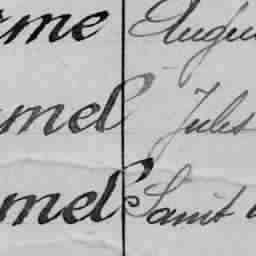 rme Augu
mel Jules
mel Saint